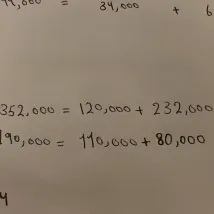 ,000 = 34,000 + 6
352.000 = 120,000 + 232,000
190,000 = 110,000 + 80,000
4